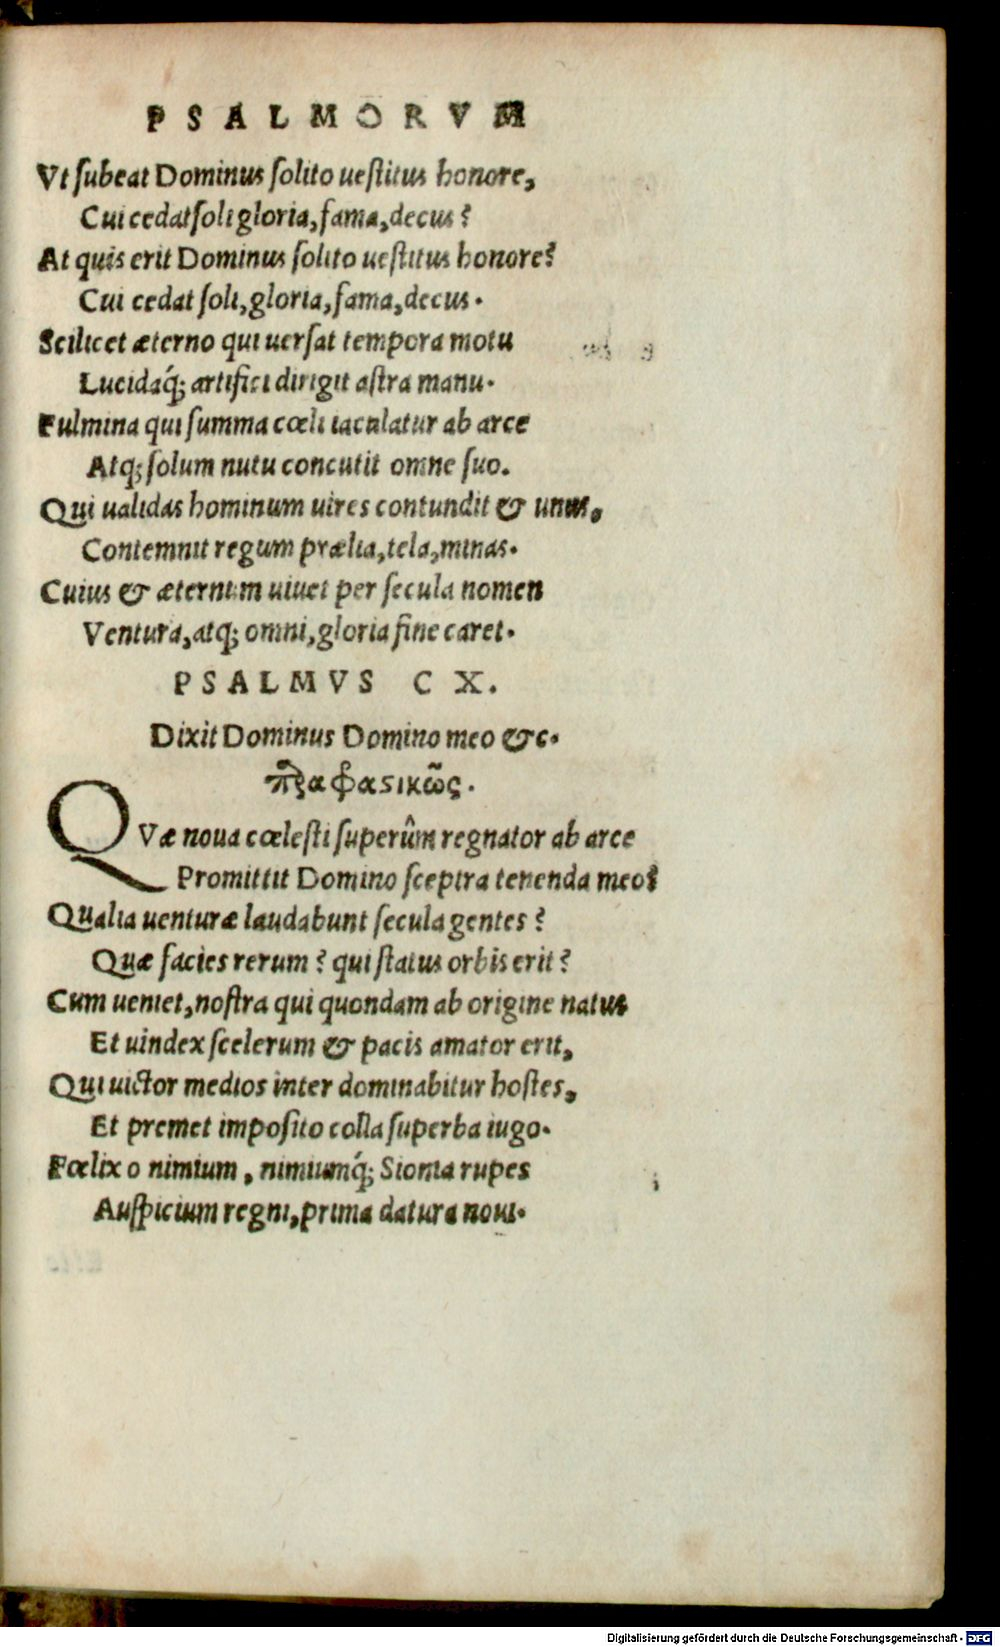 PSALMORVM
Vt subeat Dominus solito uestitus honore,
Cui cedat soli gloria, fama, decus?
At quis erit Dominus solito uestitus honore?
Cui cedat soli, gloria, fama, decus.
Scilicet æterno qui uersat tempora motu
Lucidaq́; artifici dirigit astra manu.
Fulmina qui summa cœli iaculatur ab arce
Atq; solum nutu concutit omne suo.
Qui ualidas hominum uires contundit & unus,
Contemnit regum prælia, tela, minas.
Cuius & æternum uiuet per secula nomen
Ventura, atq; omni, gloria fine caret.
PSALMVS CX.
Dixit Dominus Domino meo &c.
πρᾳφραςικῶς.
QVæ noua cœlesti superûm regnator ab arce
Promittit Domino sceptra tenenda meo?
Qualia uenturæ laudabunt secula gentes?
Quæ facies rerum? qui status orbis erit?
Cum ueniet, nostra qui quondam ab origine natus
Et uindex scelerum & pacis amator erit,
Qui uictor medios inter dominabitur hostes,
Et premet imposito colla superba iugo.
Fœlix o nimium, nimiumq́; Sionia rupes
Auspicium regni, prima datura noui.
Digitalisierung gefördert durch die Deutsche Forschungsgemeinschaft - DFG